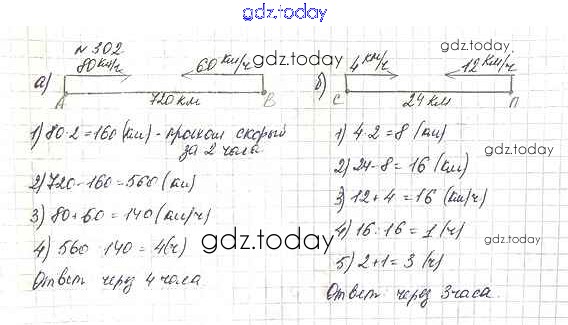 gdz.today
№ 302
а) 80 км/ч 60 км/ч
А 720 км В
1) 80·2=160 (км) - проехал скорый
за 2 часа
2) 720-160=560 (км)
3) 80+60=140 (км/ч)
4) 560 140=4(ч)
Ответ через 4 часа
gdz.today
б) 4 км/ч 12 км/ч
С 24 км П
1) 4·2=8 (км)
2) 24-8=16 (км)
3) 12+4=16 (км/ч)
4) 16:16=1 (ч)
5) 2+1=3 (ч)
Ответ через 3 часа.
gdz.today
gdz.today
gdz.today